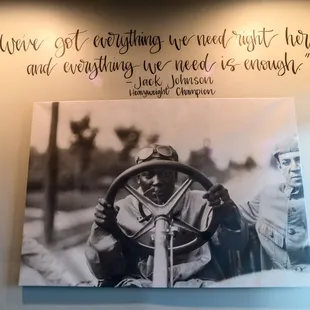 we've got everything we need right her
and everything we need is enough."
- Jack Johnson
Heavyweight Champion